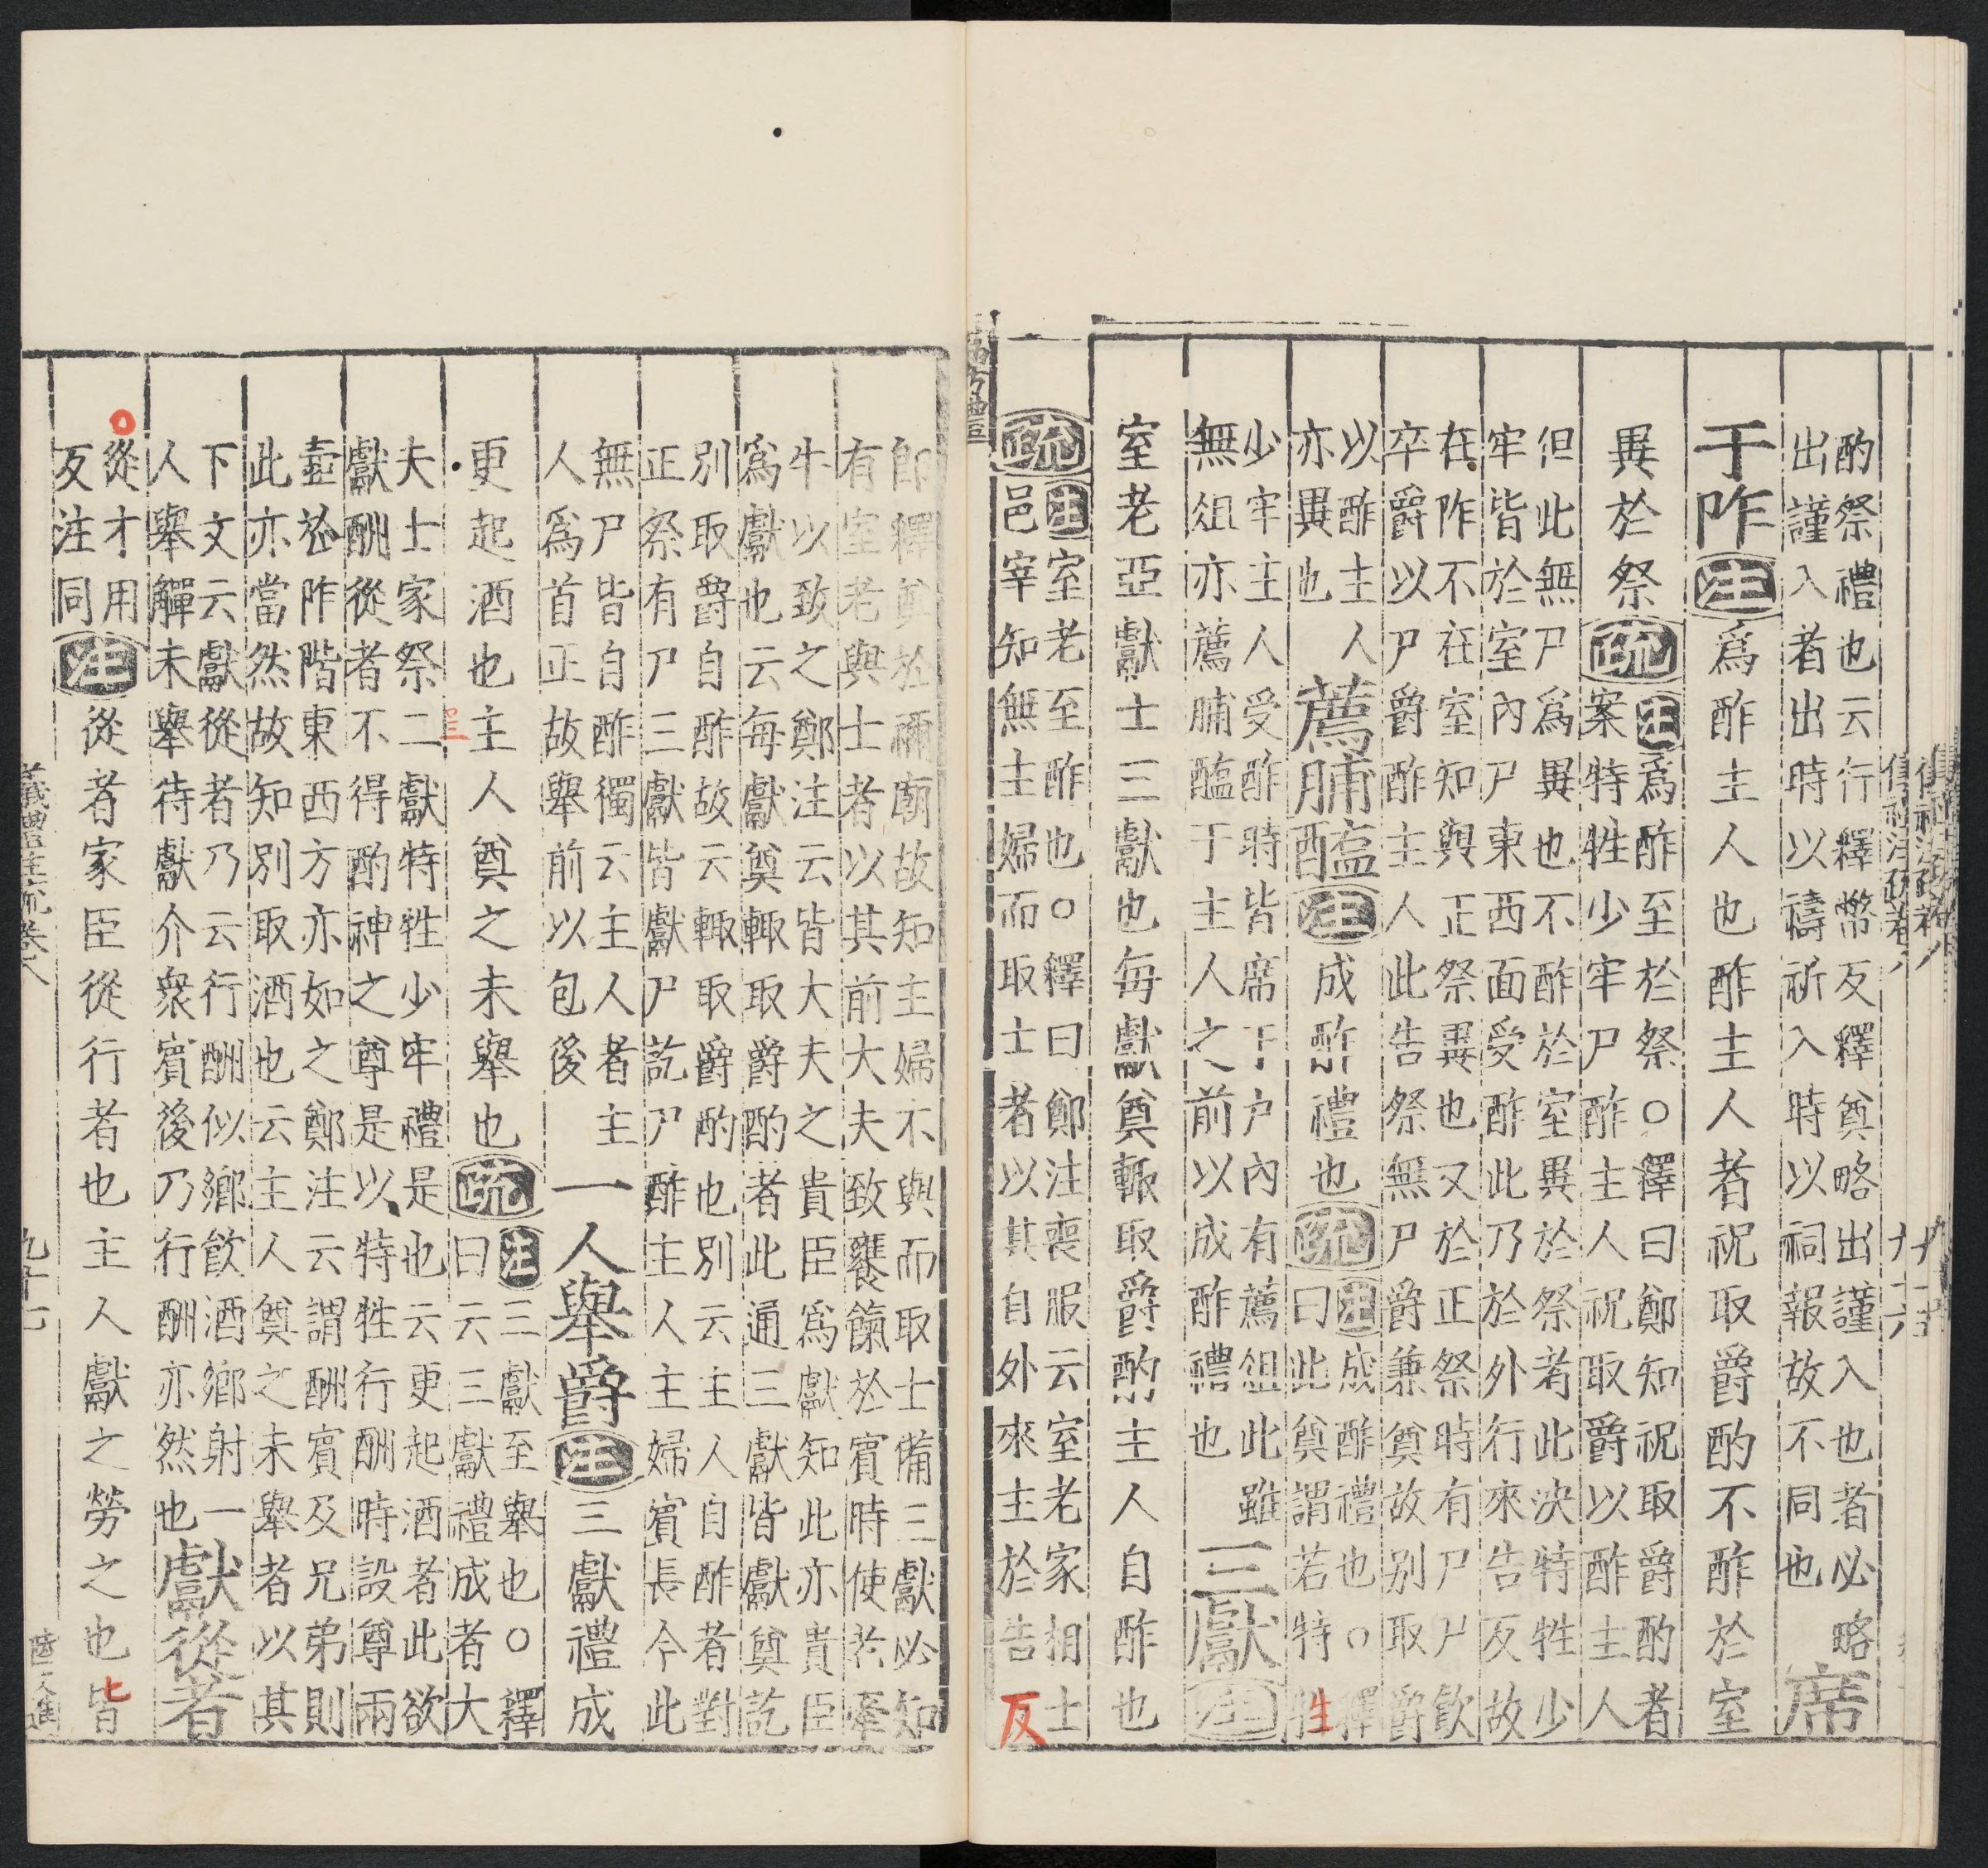 酌祭禮也云行釋幣反釋奠略出謹入也者必略
出謹入者出時以禱祈入時以祠報故不同也
席
于阼注爲酢主人也酢主人者祝取爵酌不酢於室
異於祭疏
注爲酢至於祭○釋曰鄭知祝取爵酌者
案特牲少牢尸酢主人祝取爵以酢主人
但此無尸爲異也不酢於室異於祭者此決特牲少
牢皆於室內尸東西面受酢此乃於外行來告反故
在阼不在室知與正祭異也又於正祭時有尸尸飲
卒爵以尸爵酢主人此告祭無尸爵兼奠故別取爵
以酢主人
亦異也
薦脯醢注成酢禮也疏
注成酢禮也○釋
曰此奠謂若特牲
少牢主人受酢時皆席于户內有薦俎此雖
無俎亦薦脯醢于主人之前以成酢禮也
三獻注
室老亞獻士三獻也每獻奠輒取爵酌主人自酢也
疏
注室老至酢也○釋曰鄭注喪服云室老家相士
邑宰知無主婦而取士者以其自外來主於告反
即釋奠於禰廟故知主婦不與而取士備三獻必知
有室老與士者以其前大夫致饔餼於賓時使牽
牛以致之鄭注云皆大夫之貴臣爲獻知此亦貴臣
爲獻也云每獻奠輒取爵酌者此通三獻皆獻奠訖
別取爵自酢故云輒取爵酌也別云主人自酢者對
正祭有尸三獻皆獻尸訖尸酢主人主婦賓長今此
無尸皆自酢獨云主人者主
人爲首正故舉前以包後
一人舉爵注三獻禮成
更起酒也主人奠之未舉也疏
注三獻至舉也○釋
曰云三獻禮成者大
夫士家祭二獻特牲少牢禮是也云更起酒者此欲
獻酬從者不得酌神之尊是以特牲行酬時設尊兩
壺於阼階東西方亦如之鄭注云謂酬賓及兄弟則
此亦當然故知別取酒也云主人奠之未舉者以其
下文云獻從者乃云行酬似鄉飲酒鄉射一
人舉觶未舉待獻介衆賓後乃行酬亦然也
獻從者
從才用
反注同
注從者家臣從行者也主人獻之勞之也皆
儀禮注疏卷八 九十七